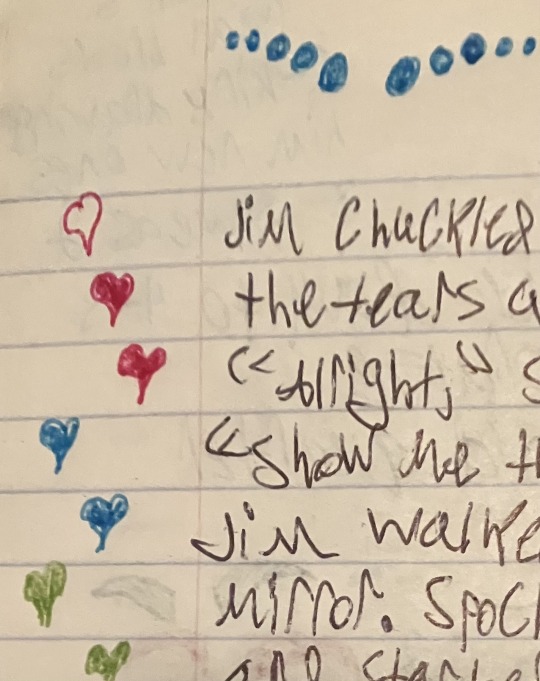 Jim chuckled
the tears a
"Alright," s
"Show me th
Jim walke
mirror. Spoc
and starte